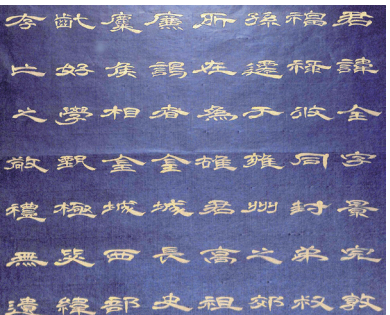 君諱全字景完敦
福祿攸同封弟叔
孫遷于雍州之郊
所在為雄君高祖
廉謁者金城長史
麋侯相金城西部
齔好學甄極毖緯
存亡之敬禮無遺